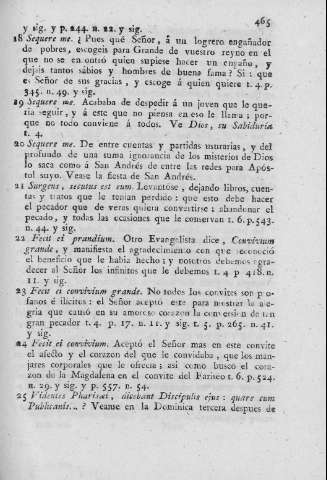 465
y sig. y p. 244. n. 22. y sig.
18 Sequere me. ¿ Pues qué Señor, á un logrero engañador
de pobres, escogeis para Grande de vuestro reyno en el
que no se encontró quien supiese hacer un engaño, y
dejais tantos sábios y hombres de buena fama? Si: que
es Señor de sus gracias, y escoge á quien quiere t. 4. p.
345. n. 49. y sig.
19 Sequere me. Acababa de despedir á un joven que le que-
ria seguir, y á este que no piensa en eso le llama; por-
que no todo conviene á todos. Ve Dios, su Sabiduria
t. 4.
20 Sequere me. De entre cuentas y partidas usurarias, y del
profundo de una suma ignorancia de los misterios de Dios
lo saca como á San Andrés de entre las redes para Após-
tol suyo. Vease la fiesta de San Andrés.
21 Surgens, secutus est eum. Levantóse, dejando libros, cuen-
tas y tratos que le tenian perdido: que esto debe hacer
el pecador que de veras quiera convertirse: abandonar el
pecado, y todas las ocasiones que le conservan t. 6. p. 543.
n. 44. y sig.
22 Fecit ei prandium. Otro Evangelista dice, Convivium
grande, y manifiesta el agradecimiento con que reconoció
el beneficio que le habia hecho: y nosotros debemos agra-
decer al Señor los infinitos que le debemos t. 4 p 418. n.
11. y sig.
23 Fecit ei convivium grande. No todos los convites son pro-
fanos é ilicitos: el Señor aceptó este para mostrar la ale-
gria que causó en su amoroso corazon la conversion de un
gran pecador t. 4. p. 17. n. 11. y sig. t. 5. p. 265. n. 41.
y sig.
24 Fecit ei convivium. Aceptó el Señor mas en este convite
el afecto y el corazon del que le convidaba, que los man-
jares corporales que le ofrecia; asi como buscó el cora-
zon de la Magdalena en el convite del Fariseo t. 6. p. 524.
n. 29. y sig. y p. 557. n. 54.
25 Videntes Pharisæi, dicebant Discipulis ejus: quare cum
Publicanis... ? Veanse en la Dominica tercera despues de